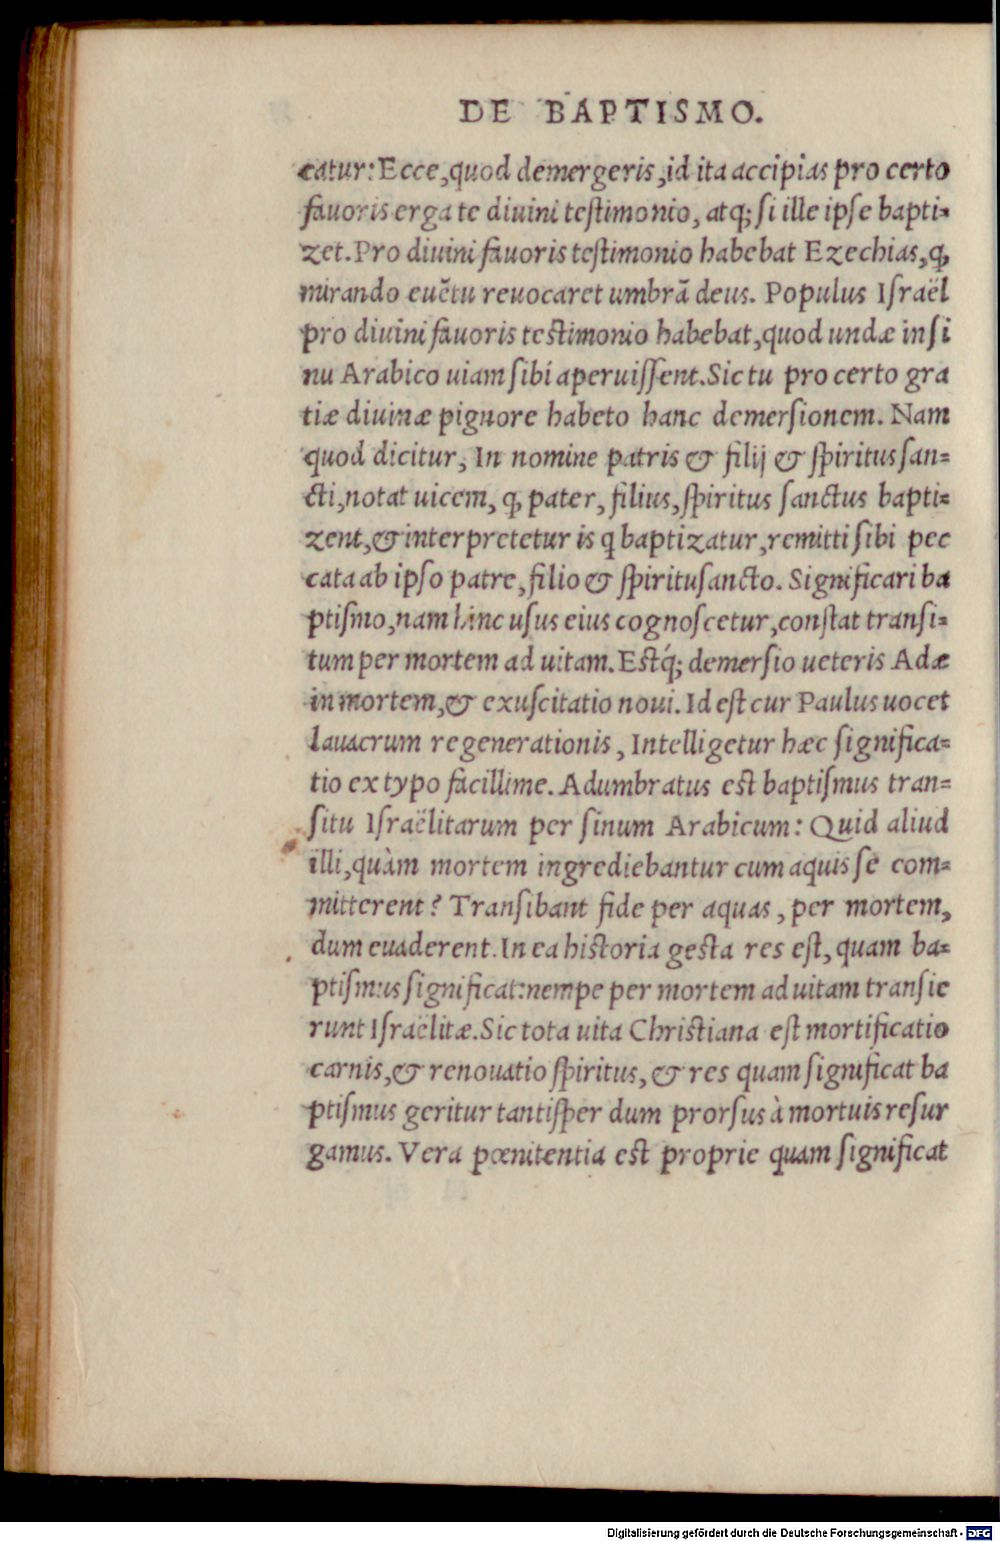 DE BAPTISMO.
catur: Ecce, quod demergeris, id ita accipias pro certo
fauoris erga te diuini testimonio, atq; si ille ipse bapti-
zet. Pro diuini fauoris testimonio habebat Ezechias, ꝙ
mirando euẽtu reuocaret umbrã deus. Populus Israël
pro diuini fauoris testimonio habebat, quod undæ in si
nu Arabico uiam sibi aperuissent. Sic tu pro certo gra
tiæ diuinæ pignore habeto hanc demersionem. Nam
quod dicitur, In nomine patris & filij & spiritus san-
cti, notat uicem, ꝙ pater, filius, spiritus sanctus bapti-
zent, & interpretetur is q baptizatur, remitti sibi pec
cata ab ipso patre, filio & spiritusancto. Significari ba
ptismo, nam hinc usus eius cognoscetur, constat transi-
tum per mortem ad uitam. Estq́; demersio ueteris Adæ
in mortem, & exuscitatio noui. Id est cur Paulus uocet
lauacrum regenerationis, Intelligetur hæc significa-
tio ex typo facillime. Adumbratus est baptismus tran-
situ Israëlitarum per sinum Arabicum: Quid aliud
illi, quàm mortem ingrediebantur cum aquis se com-
mitterent? Transibant fide per aquas, per mortem,
dum euaderent. In ea historia gesta res est, quam ba-
ptismus significat: nempe per mortem ad uitam transie
runt Israëlitæ. Sic tota uita Christiana est mortificatio
carnis, & renouatio spiritus, & res quam significat ba
ptismus geritur tantisper dum prorsus à mortuis resur
gamus. Vera pœnitentia est proprie quam significat
Digitalisierung gefördert durch die Deutsche Forschungsgemeinschaft - DFG